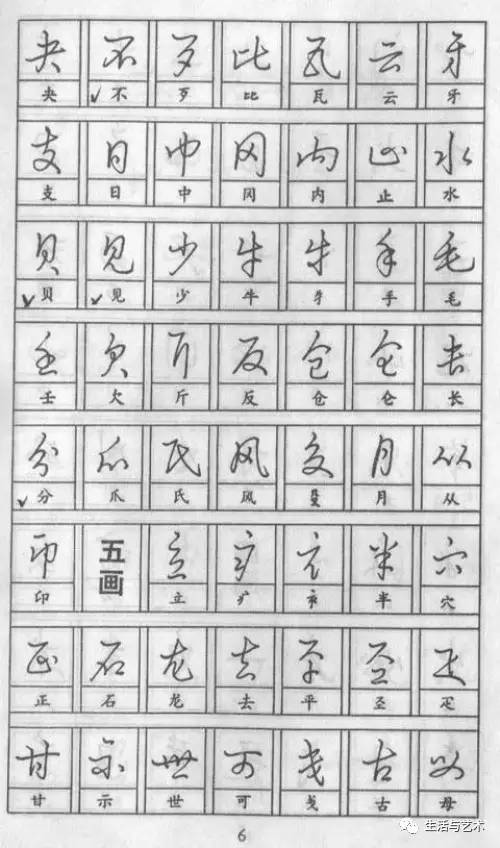 夬 不 歹 比 瓦 云 牙
夬 不 歹 比 瓦 云 牙
支 日 中 冈 内 止 水
支 日 中 冈 内 止 水
贝 见 少 牛 牜 手 毛
贝 见 少 牛 牜 手 毛
壬 欠 斤 反 仓 仑 长
壬 欠 斤 反 仓 仑 长
分 爪 氏 风 殳 月 从
分 爪 氏 风 殳 月 从
印 五画 立 疒 半 穴
印 立 疒 半 穴
正 石 龙 去 平 疋
正 石 龙 去 平 疋
甘 示 世 可 戋 古 母
甘 示 世 可 戋 古 母
6
生活与艺术